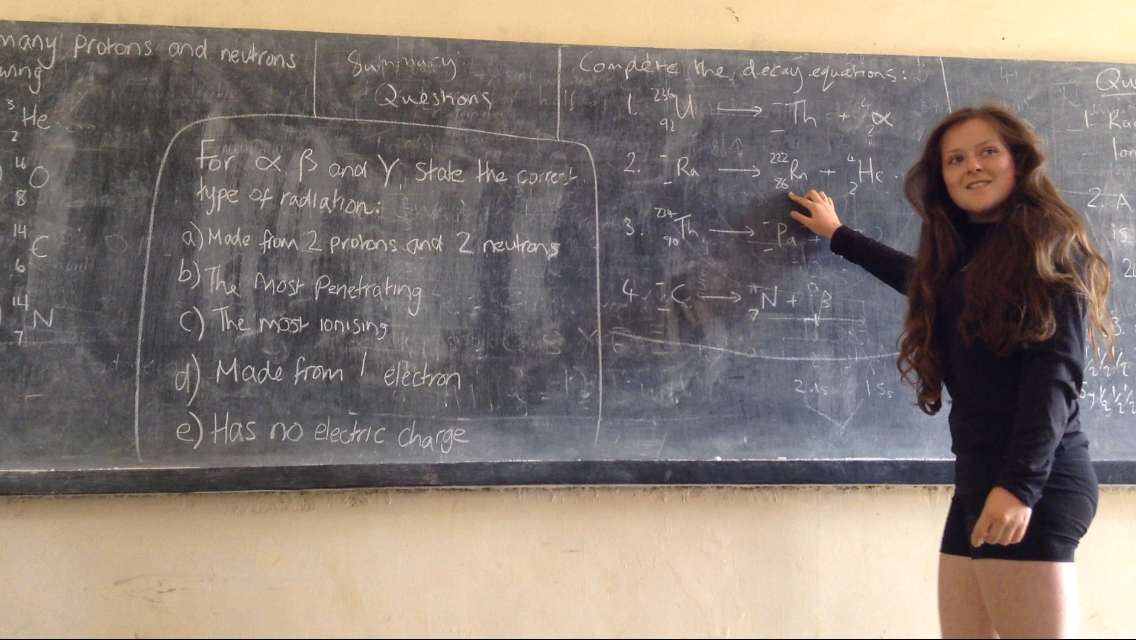 many Protons and neutrons
wing
3
2 He
16
8 O
14
6 C
14
7 N
Summary
Questions
For α β and γ, state the correct
type of radiation:
a) Made from 2 protons and 2 neutrons
b) The Most Penetrating
c) The most ionising
d) Made from 1 electron
e) Has no electric charge
Complete the decay equations:
1. 236 92 U → - - Th + 4 2 α
2. - - Ra → 222 86 Rn + 4 2 He
3. 234 90 Th → - - Pa +
4. - - C → 14 7 N + 0 -1 β
Qu
1. Ra
lon
2. A
is
3.